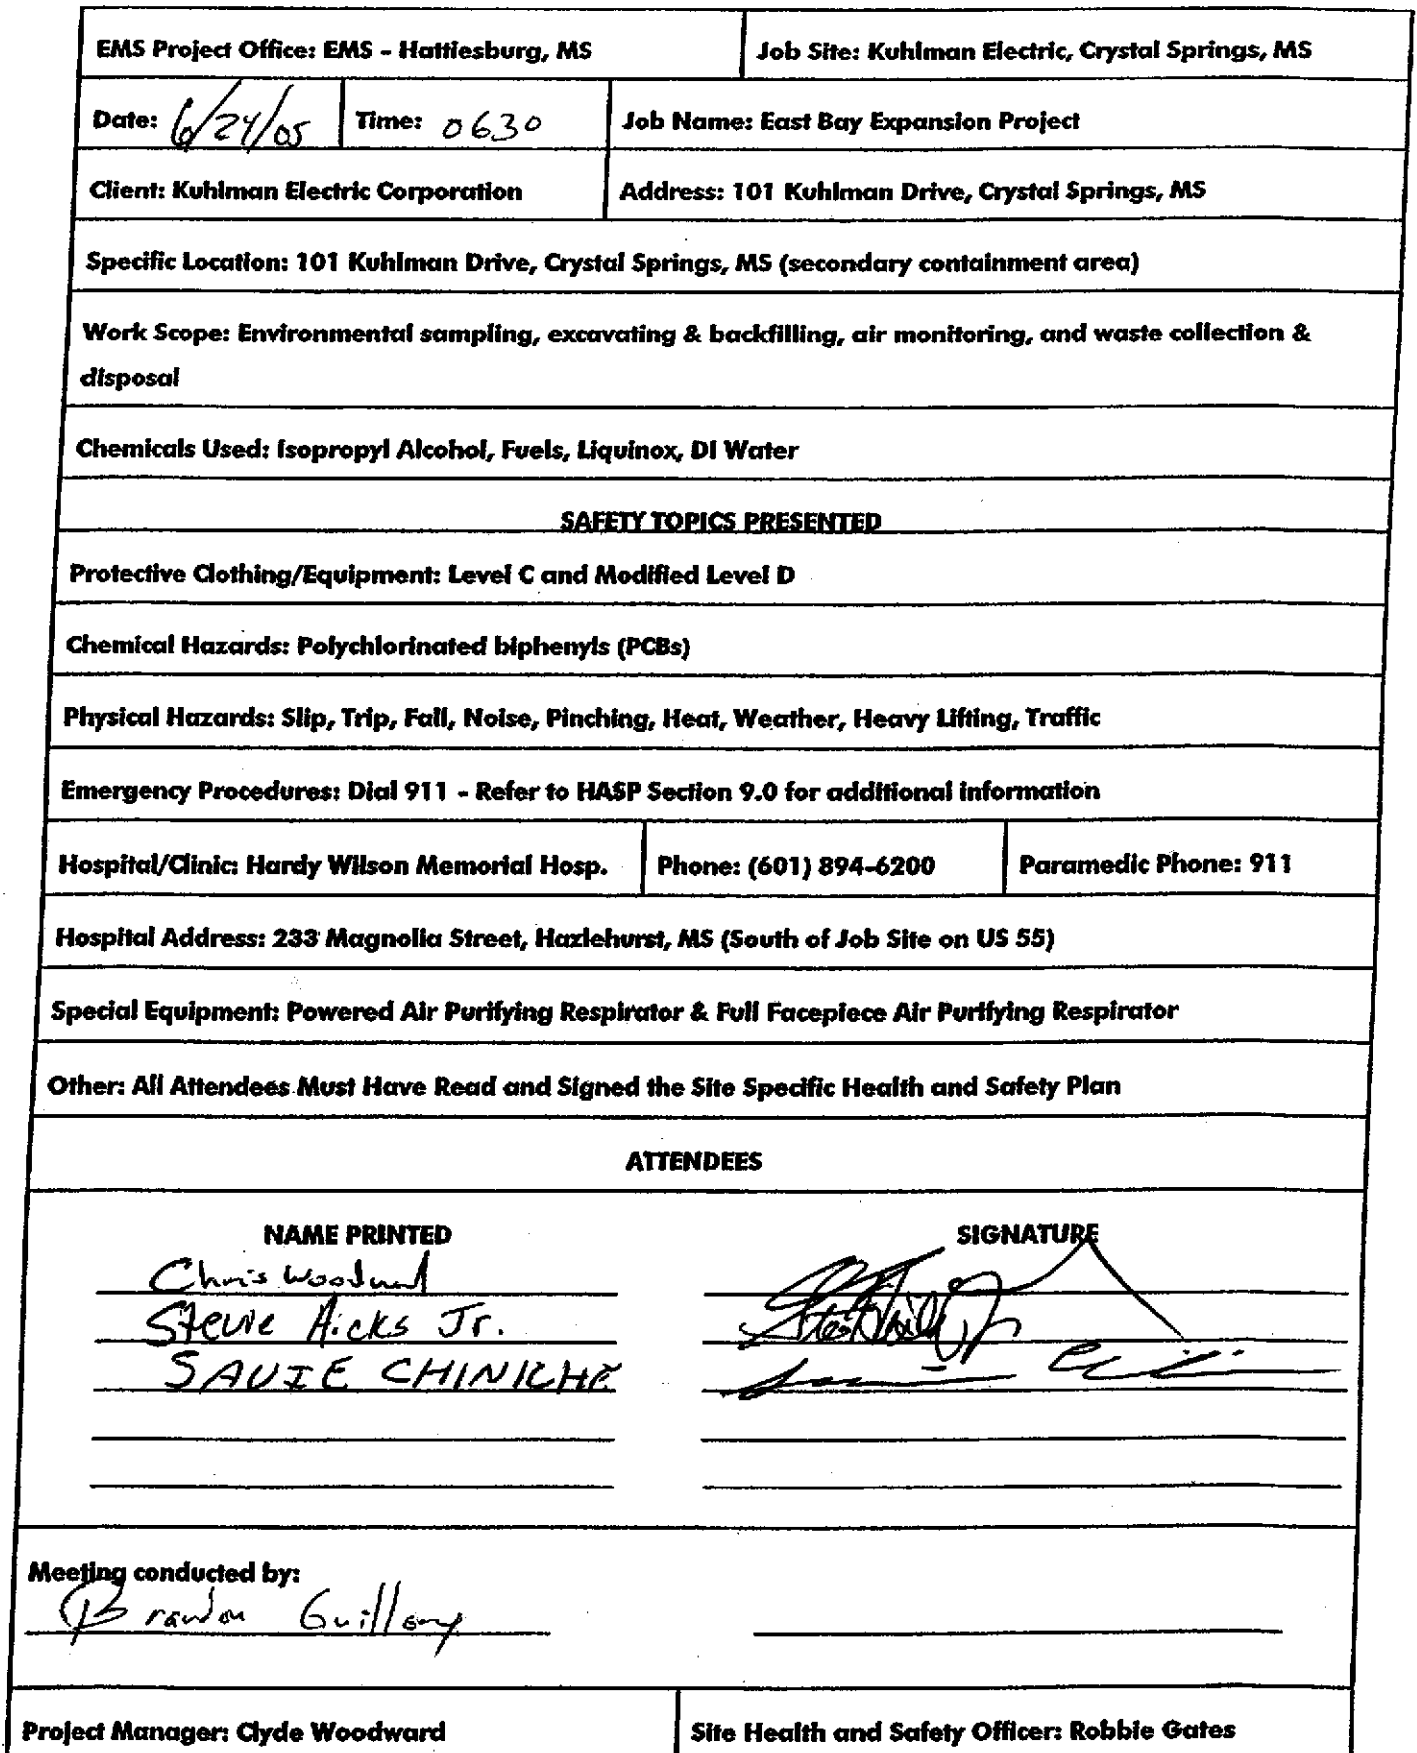 EMS Project Office: EMS - Hattiesburg, MS
Job Site: Kuhlman Electric, Crystal Springs, MS
Date: 6/24/05
Time: 0630
Job Name: East Bay Expansion Project
Client: Kuhlman Electric Corporation
Address: 101 Kuhlman Drive, Crystal Springs, MS
Specific Location: 101 Kuhlman Drive, Crystal Springs, MS (secondary containment area)
Work Scope: Environmental sampling, excavating & backfilling, air monitoring, and waste collection &
disposal
Chemicals Used: Isopropyl Alcohol, Fuels, Liquinox, DI Water
SAFETY TOPICS PRESENTED
Protective Clothing/Equipment: Level C and Modified Level D
Chemical Hazards: Polychlorinated biphenyls (PCBs)
Physical Hazards: Slip, Trip, Fall, Noise, Pinching, Heat, Weather, Heavy Lifting, Traffic
Emergency Procedures: Dial 911 - Refer to HASP Section 9.0 for additional information
Hospital/Clinic: Hardy Wilson Memorial Hosp.
Phone: (601) 894-6200
Paramedic Phone: 911
Hospital Address: 233 Magnolia Street, Hazlehurst, MS (South of Job Site on US 55)
Special Equipment: Powered Air Purifying Respirator & Full Facepiece Air Purifying Respirator
Other: All Attendees Must Have Read and Signed the Site Specific Health and Safety Plan
ATTENDEES
NAME PRINTED
SIGNATURE
Chris Woodward
Stevie Hicks Jr.
SAVIE CHINICHE
Meeting conducted by:
Brandon Guillory
Project Manager: Clyde Woodward
Site Health and Safety Officer: Robbie Gates